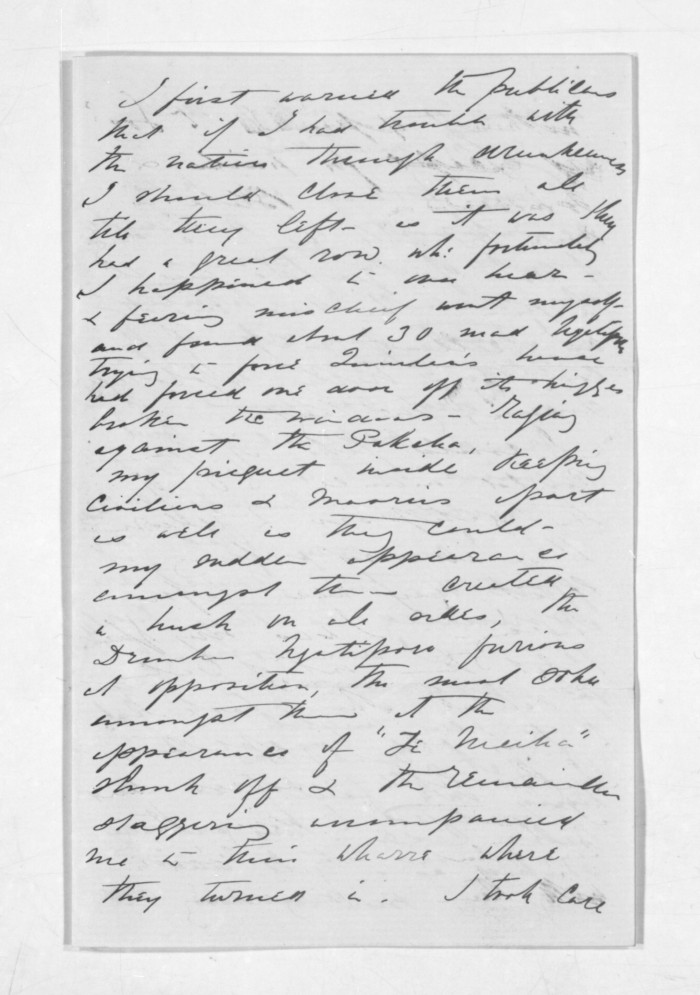 I first warned the publicans
that if I had trouble with
the natives through drunkenness
I should close them all
till they left - as it was they
had a great row. wh: fortunately
I happened to over hear -
& fearing mischief went myself
and found about 30 mad Ngatiporo
trying to force house
had forced one door off its hinges
broken the windows - Raging
against the Pakeha,
my picquet inside keeping
civilians & Maoris apart
as well as they could -
my sudden appearance
amongst them created
a hush on all sides, the
Drunken Ngatiporo furious
at opposition, the most sober
amongst them at the
appearance of "Te Meiha"
shrunk off & the remainder
staggering accompanied
me to their wharre where
they turned in. I took care